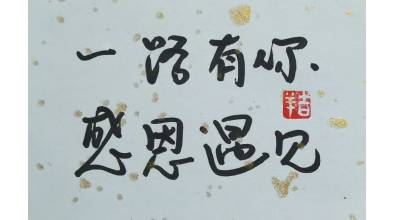 一路有你
感恩遇见